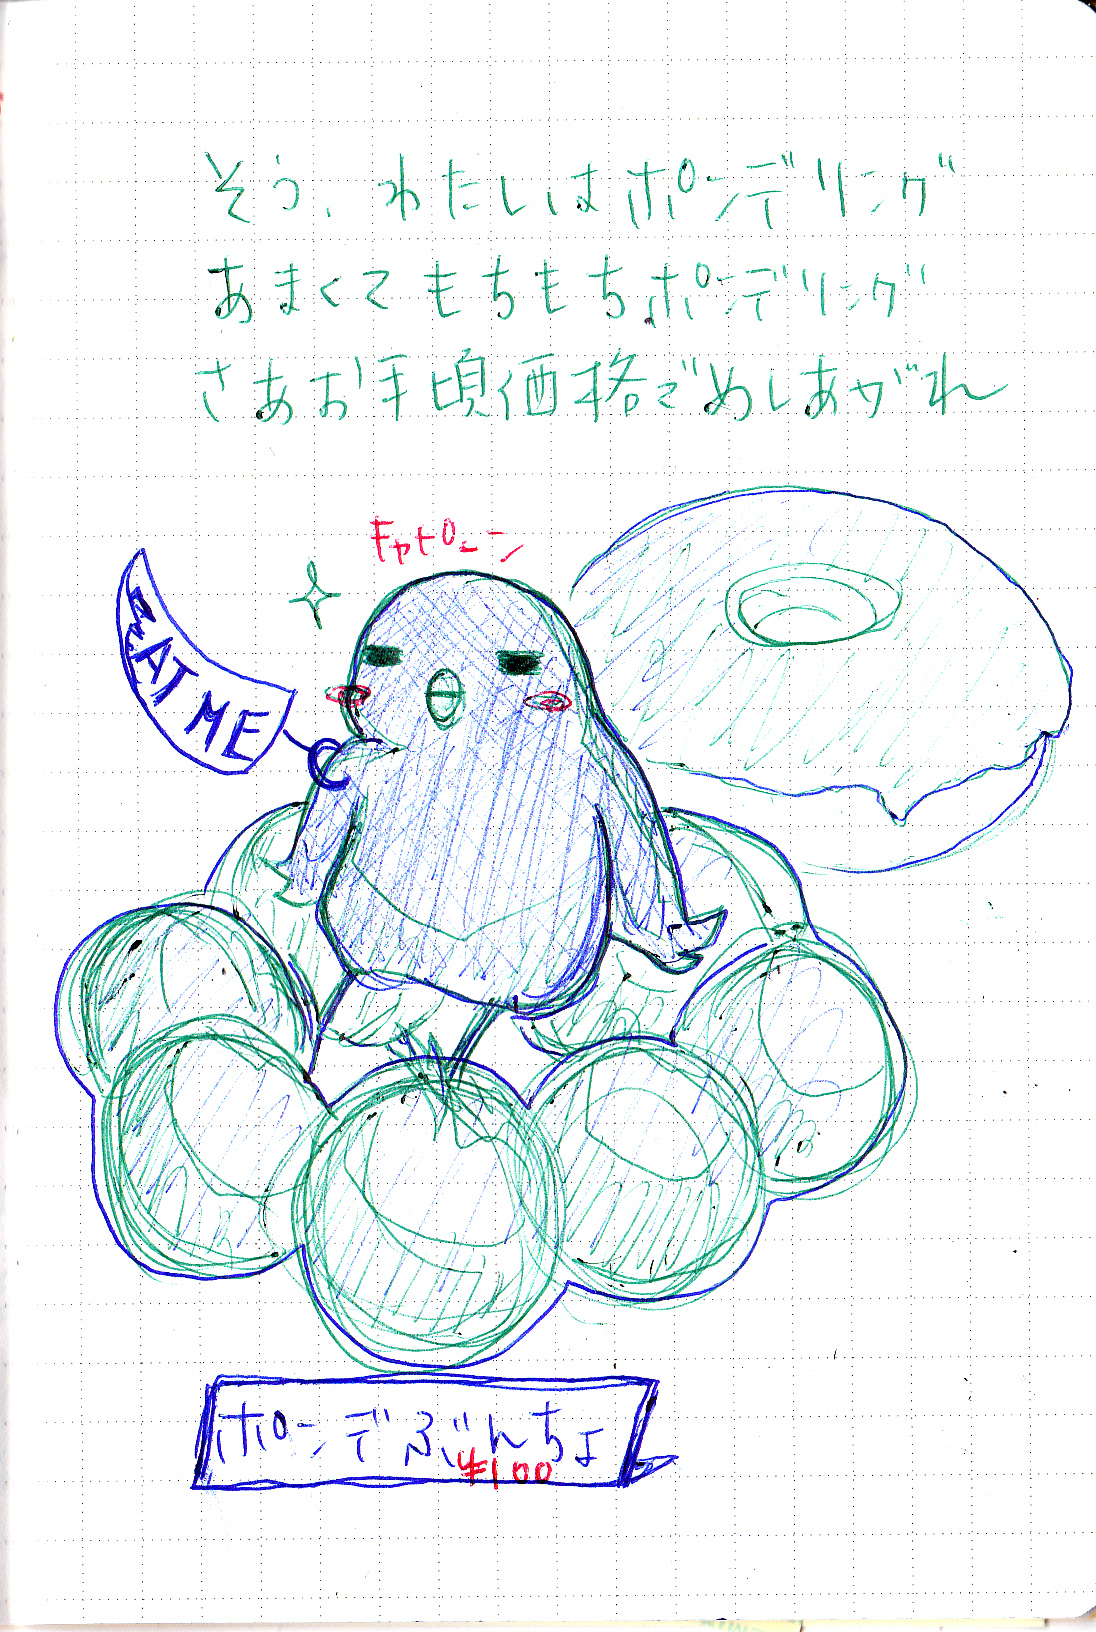 そう、わたしはポンデリング
あまくてもちもちポンデリング
さあお手頃価格でめしあがれ
EAT ME
ポンデぶんちょ
¥100